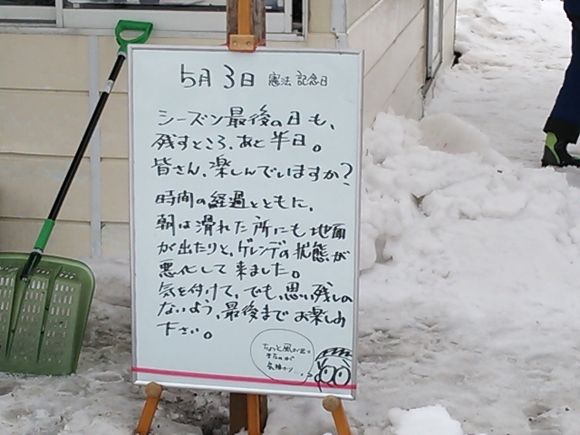 5月3日 憲法記念日
シーズン最後の日も、
残すところ、あと半日。
皆さん、楽しんでいますか?
時間の経過とともに、
朝は滑れた所にも地面
が出たりと、ゲレンデの状態が
悪化して来ました。
気を付けて、でも、思い残しの
ないよう、最後までお楽しみ
下さい。
ちょっと風が出て
きたのが
気掛かり…。